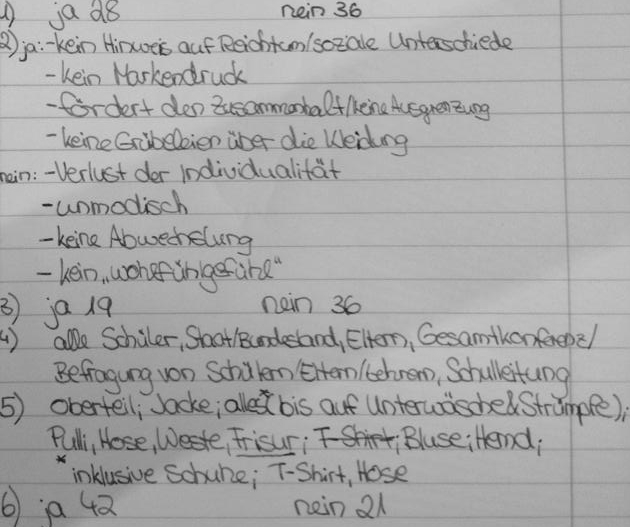 1) ja 28 nein 36
2) ja: -kein Hinweis auf Reichtum/soziale Unterschiede
-kein Markendruck
-fördert den Zusammenhalt/keine Ausgrenzung
-keine Grübeleien über die Kleidung
nein: -Verlust der Individualität
-unmodisch
-keine Abwechslung
-kein „wohlfühlgefühl“
3) ja 19 nein 36
4) alle Schüler, Staat/Bundesland, Eltern, Gesamtkonferenz/
Befragung von Schülern/Eltern/Lehrern, Schulleitung
5) Oberteil; Jacke; alles* (bis auf Unterwäsche & Strümpfe);
Pulli, Hose, Weste, Frisur; T-Shirt; Bluse; Hemd;
*inklusive Schuhe; T-Shirt, Hose
6) ja 42 nein 21